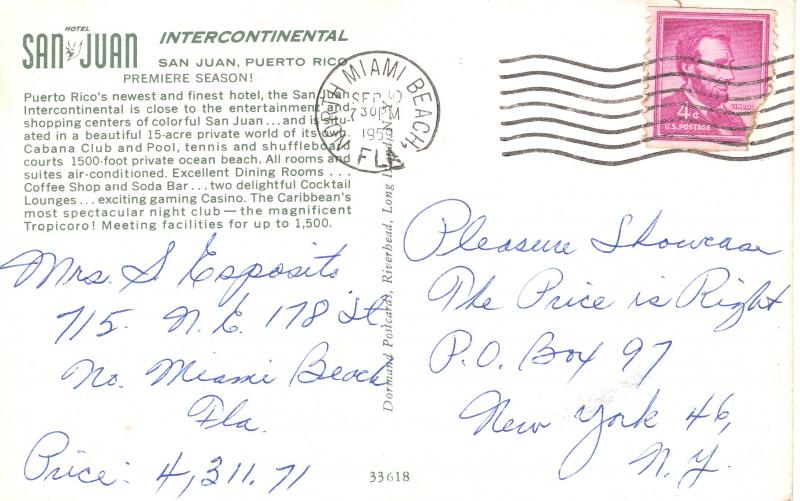 HOTEL
SAN JUAN INTERCONTINENTAL
SAN JUAN, PUERTO RICO
PREMIERE SEASON!
Puerto Rico's newest and finest hotel, the San Juan
Intercontinental is close to the entertainment and
shopping centers of colorful San Juan ... and is situ-
ated in a beautiful 15-acre private world of its own.
Cabana Club and Pool, tennis and shuffleboard
courts 1500-foot private ocean beach. All rooms and
suites air-conditioned. Excellent Dining Rooms ...
Coffee Shop and Soda Bar ... two delightful Cocktail
Lounges ... exciting gaming Casino. The Caribbean's
most spectacular night club — the magnificent
Tropicoro! Meeting facilities for up to 1,500.
Mrs. S Esposito
715. N.E. 178 St
No. Miami Beach
Fla.
Price: 4,311.71
Dormand Postcards, Riverhead, Long Island, N.Y.
33618
MIAMI BEACH,
FLA.
SEP
730PM
4¢
U.S. POSTAGE
LINCOLN
Pleasure Showcase
The Price is Right
P.O. Box 97
New York 46,
N.Y.